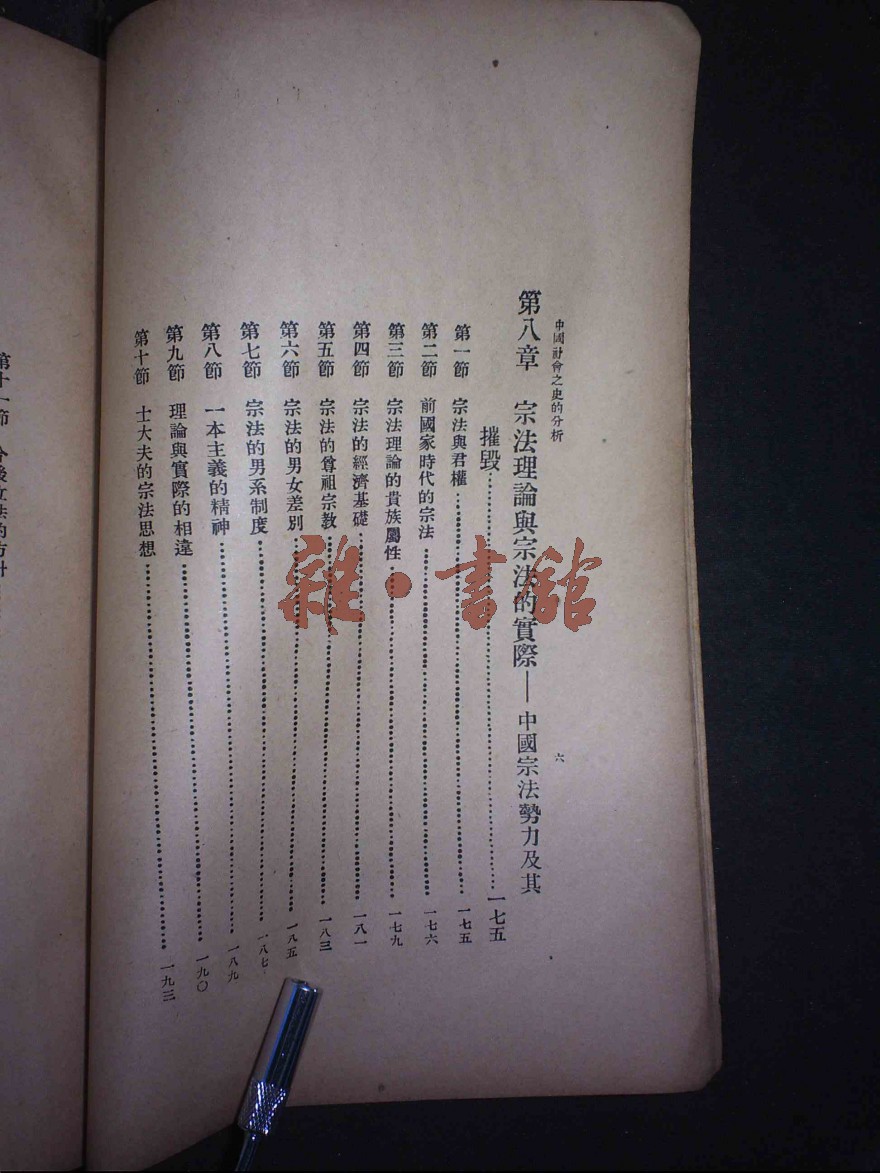 中國社會之史的分析
六
第八章 宗法理論與宗法的實際——中國宗法勢力及其
摧毀……一七五
第一節 宗法與君權……一七五
第二節 前國家時代的宗法……一七六
第三節 宗法理論的貴族屬性……一七九
第四節 宗法的經濟基礎……一八一
第五節 宗法的尊祖宗教……一八三
第六節 宗法的男女差別……一八五
第七節 宗法的男系制度……一八七
第八節 一本主義的精神……一八九
第九節 理論與實際的相違……一九〇
第十節 士大夫的宗法思想……一九三
第十一節 今後立法的方針
雜·書館